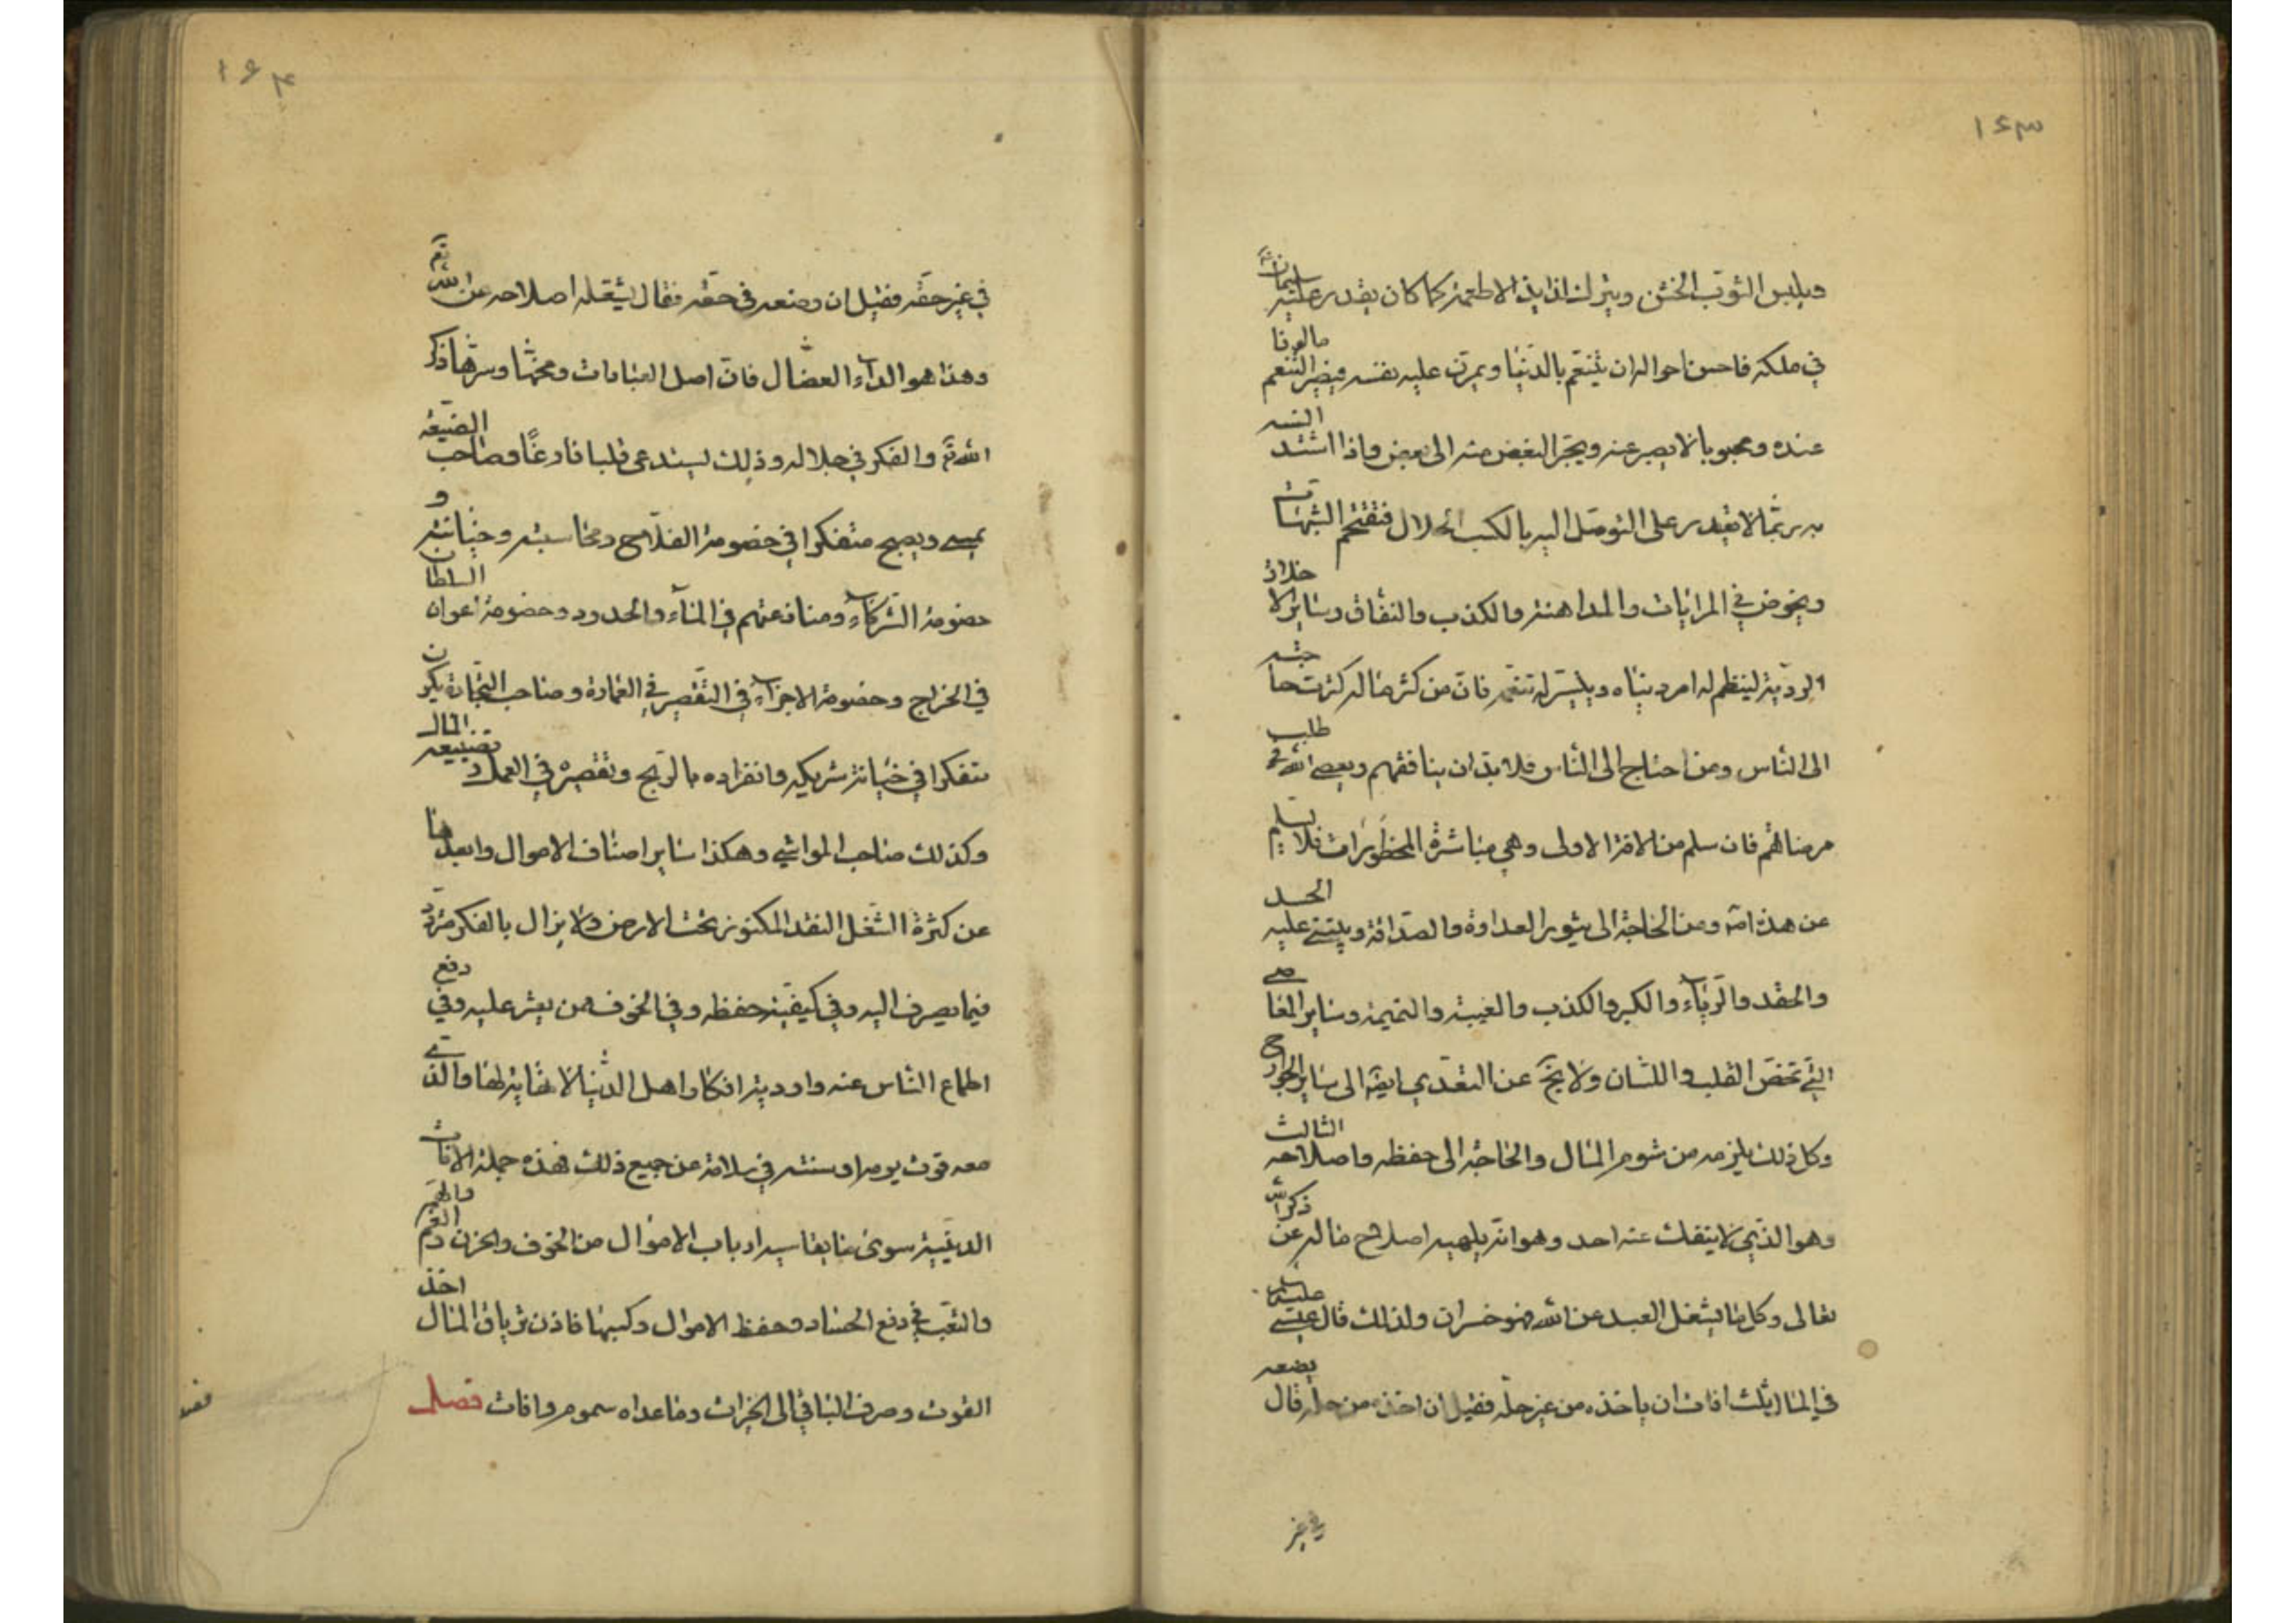 ١٤٣
ويلبس الثوب الخشن ويترك لذائذ الاطعمة كما كان يقدر عليه سليمان
في ملكه فاحسن احواله ان يتنعم بالدنيا ويمرّن عليه نفسه فيصير التنعم مألوفا
عنده ومحبوبا لا يصبر عنه ويجرّ البعض منه الى بعض واذا اشتد انسه
به ربّما لا يقدر على التوصّل اليه بالكسب الحلال فيقتحم الشبهات
ويخوض في المرايات والمداهنة والكذب والنفاق وساير الاخلاق
الرديّة لينتظم له امر دنياه ويتيسّر له تنعّمه فانّ من كثر ماله كثرت حاجته
الى النّاس ومن احتاج الى النّاس فلا بدّ ان ينافقهم ويعصي الله في طلب
مرضاتهم فان سلم من الافة الاولى وهي مباشرة المحظورات فلا يسلم
عن هذه اصلا ومن الحاجة الى يثور العداوة والصداقة ويبتني عليه الحسد
والحقد والرّياء والكبر والكذب والغيبة والنميمة وساير المعاصي
التي تخصّ القلب واللسان ولا يخ عن التعدّي ايضا الى ساير الجوارح
وكل ذلك يلزم من شوم المال والحاجة الى حفظه واصلاحه الثالث
وهو الذّي لا ينفك عنه احد وهو انّه يلهيه اصلاح ماله عن ذكر الله
تعالى وكل ما يشغل العبد عن الله فهو خسران ولذلك قال عيسى عليه السلام
في المال ثلث افات ان ياخذه من غير حلّه فقيل ان اخذه من حلّه قال يضعه
في غير
١٤٤
في غير حقّه فقيل ان وضعه في حقّه فقال يشغله اصلاحه عن الله تع
وهذا هو الداء العضال فانّ اصل العبادات ومخّها وسرّها ذكر
الله تع والفكر في جلاله وذلك يستدعي قلبا فارغًا وصاحب الضيعة
يمسي ويصبح متفكرا في خصومة الفلّاح ومحاسبته وخيانته و
خصومة الشّركاء ومنازعتهم في الماء والحدود وخصومة اعوان السلطان
في الخراج وخصومة الاجراء في التقصير في العمارة وصاحب التجارة يكون
متفكرا في خيانة شريكه وانفراده بالرّبح وتقصيره في العمل وتضييعه المال
وكذلك صاحب المواشي وهكذا ساير اصناف الاموال وابعدها
عن كثرة الشّغل النقد المكنوز تحت الارض ولا يزال بالفكر متردّد
فيما يصرف اليه وفي كيفيّة حفظه وفي الخوف ممن يعثر عليه وفي دفع
اطماع النّاس عنه واودية افكار اهل الدّنيا لا نهاية لها والذي
معه قوت يومه او سنته في سلامة عن جميع ذلك فهذه جملة الافات
الدينيّة سوى ما يقاسيه ارباب الاموال من الخوف والحزن والهم والغم
والتّعب في دفع الحسّاد وحفظ الاموال وكسبها فاذن ترياق المال اخذ
القوت وصرف الباقي الى الخيرات وما عداه سموم وافات فصل